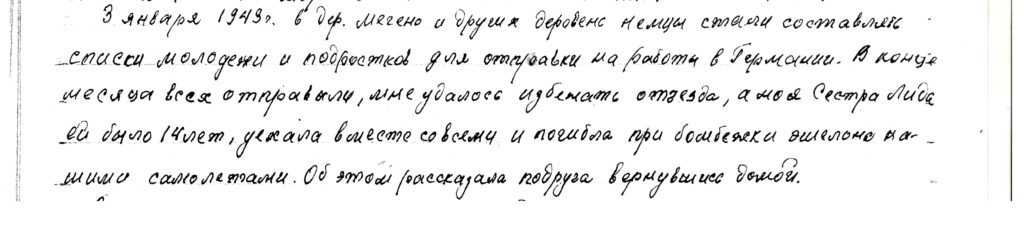 3 января 1943г. в дер. Мегено и других деревень немцы стали составлять
списки молодежи и подростков для отправки на работы в Германии. В конце
месяца всех отправили, мне удалось избежать отъезда, а моя Сестра Лида
ей было 14 лет, уехала вместе со всеми и погибла при бомбежки эшелона на-
шими самолетами. Об этом рассказала подруга вернувшись домой.